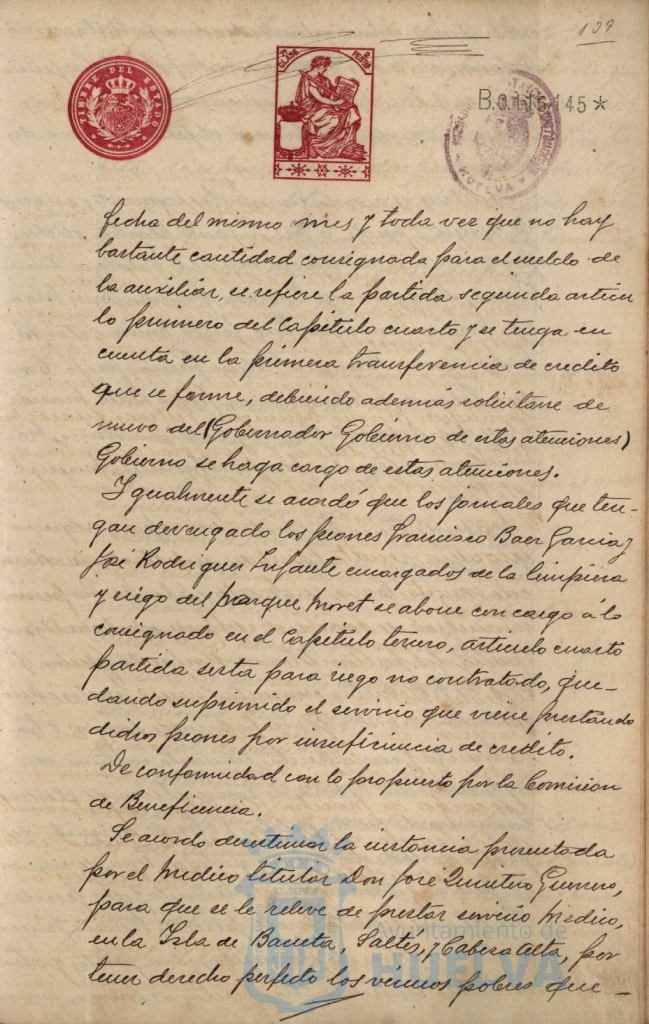 139
TIMBRE DEL ESTADO
CLASE
PESETAS
B.0.116.145*
HUELVA
fecha del mismo mes y toda vez que no hay
bastante cantidad consignada para el sueldo de
la auxiliar, se refiere la partida segunda articu
lo primero del Capitulo cuarto y se tenga en
cuenta en la primera transferencia de credito
que se forme, debiendo además solicitarse de
nuevo del (Gobernador Gobierno de estas atenciones)
Gobierno se haga cargo de estas atenciones.
Igualmente se acordó que los jornales que ten-
gan devengado los peones Francisco Baer Garcia y
José Rodriguez Infante encargados de la limpieza
y riego del parque Moret se abone con cargo á lo
consignado en el Capitulo tercero, articulo cuarto
partida sexta para riego no contratado, que-
dando suprimido el servicio que viene prestando
dichos peones por insuficiencia de credito.
De conformidad con lo propuesto por la Comision
de Beneficencia.
Se acordo desestimar la instancia presentada
por el Medico titular Don José Quintero Guerrero,
para que se le releve de prestar servicio Medico,
en la Isla de Bacuta, Saltes, y Cabeza Alta, por
tener derecho perfecto los vecinos pobres que-
Ayuntamiento de
HUELVA